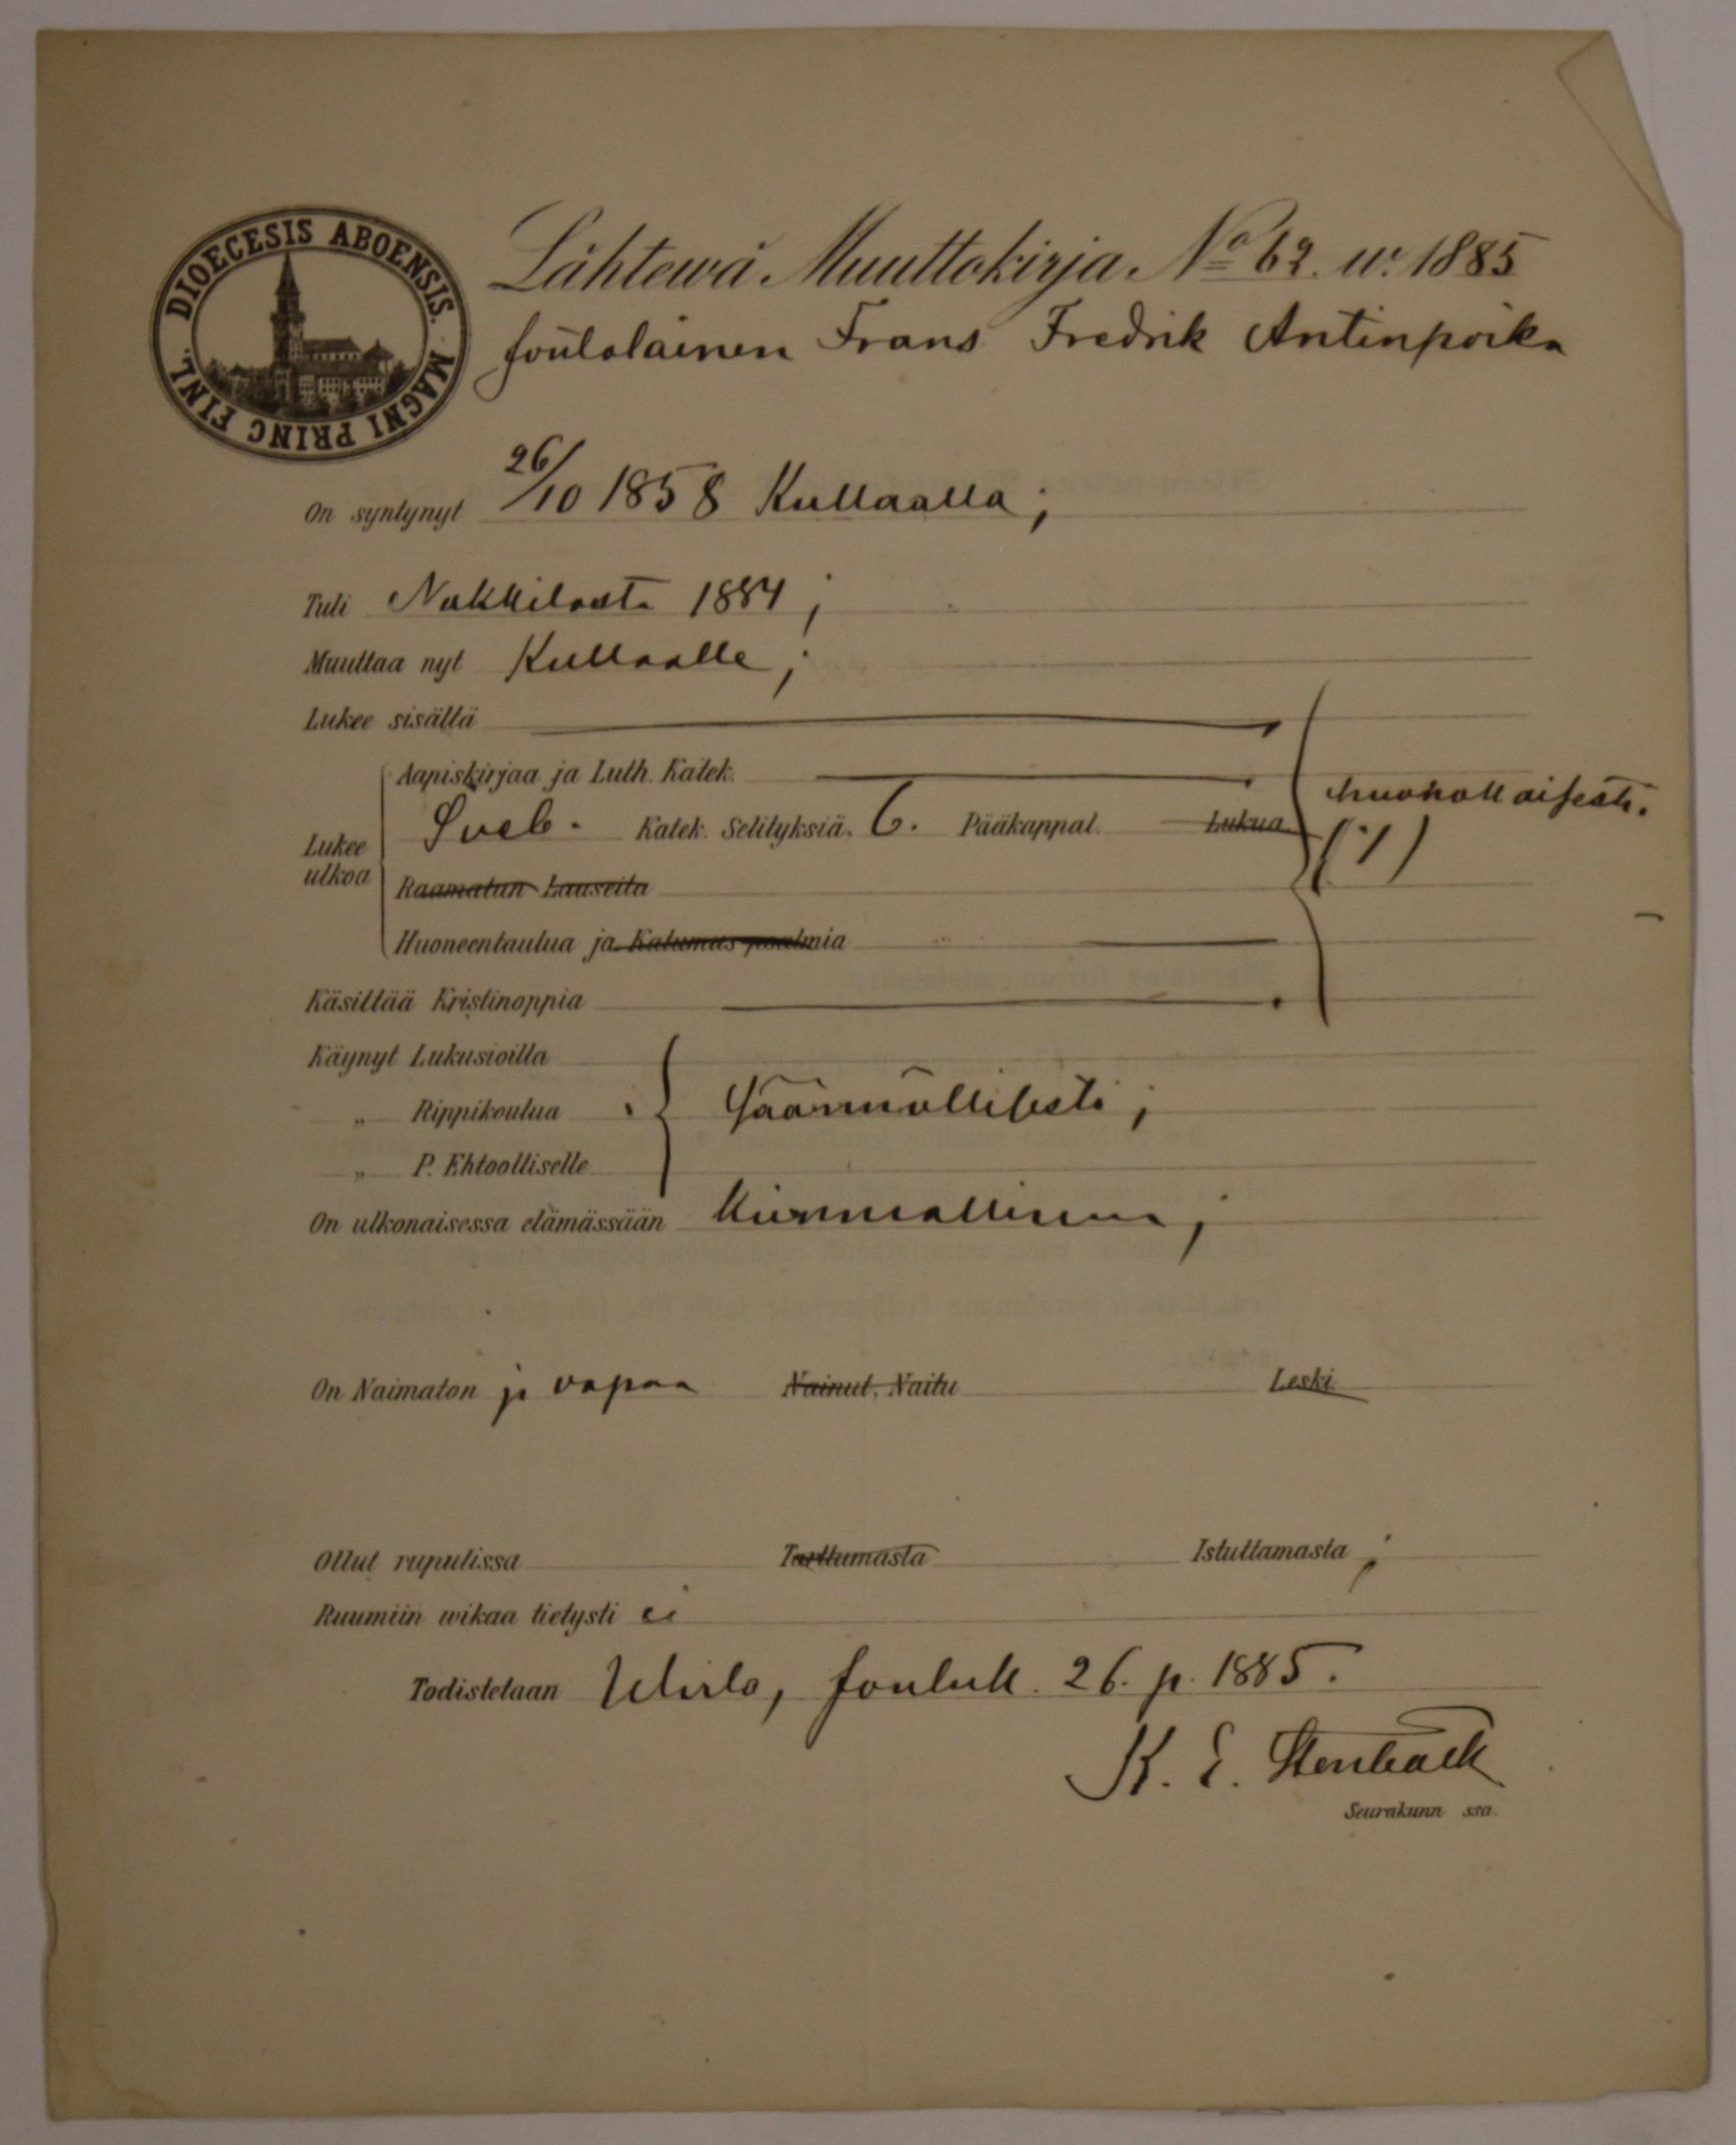 DIOECESIS ABOENSIS. MAGNI PRINC FINL.
Lähtewä Muuttokirja No 62. w. 1885
joutolainen Frans Fredrik Antinpoika
On syntynyt 26/10 1858 Kullaalla;
Tuli Nakkilasta 1884;
Muuttaa nyt Kullaalle;
Lukee sisältä
Aapiskirjaa ja Luth. Katek.
huonollaisesti.
Lukee ulkoa
Sveb. Katek. Selityksiä. 6. Pääkappal. Lukua
(1/.)
Raamatun Lauseita
Huoneentaulua ja Katumus psalmia
Käsittää Kristinoppia
Käynyt Lukusioilla
„ Rippikoulua säännöllisesti;
„ P. Ehtoolliselle
On ulkonaisessa elämässään kunniallinen;
On Naimaton ja vapaa Nainut, Naitu Leski.
Ollut rupulissa Tarttumasta Istuttamasta;
Ruumiin wikaa tietysti ei
Todistetaan Ulvila, Jouluk. 26. p. 1885.
K. E. Stenbäck
Seurakunn ssa.